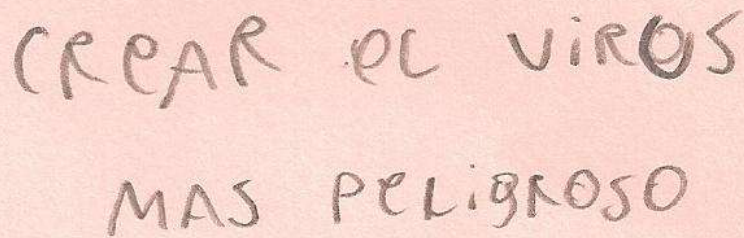 CREAR EL VIROS
MAS PELIGROSO